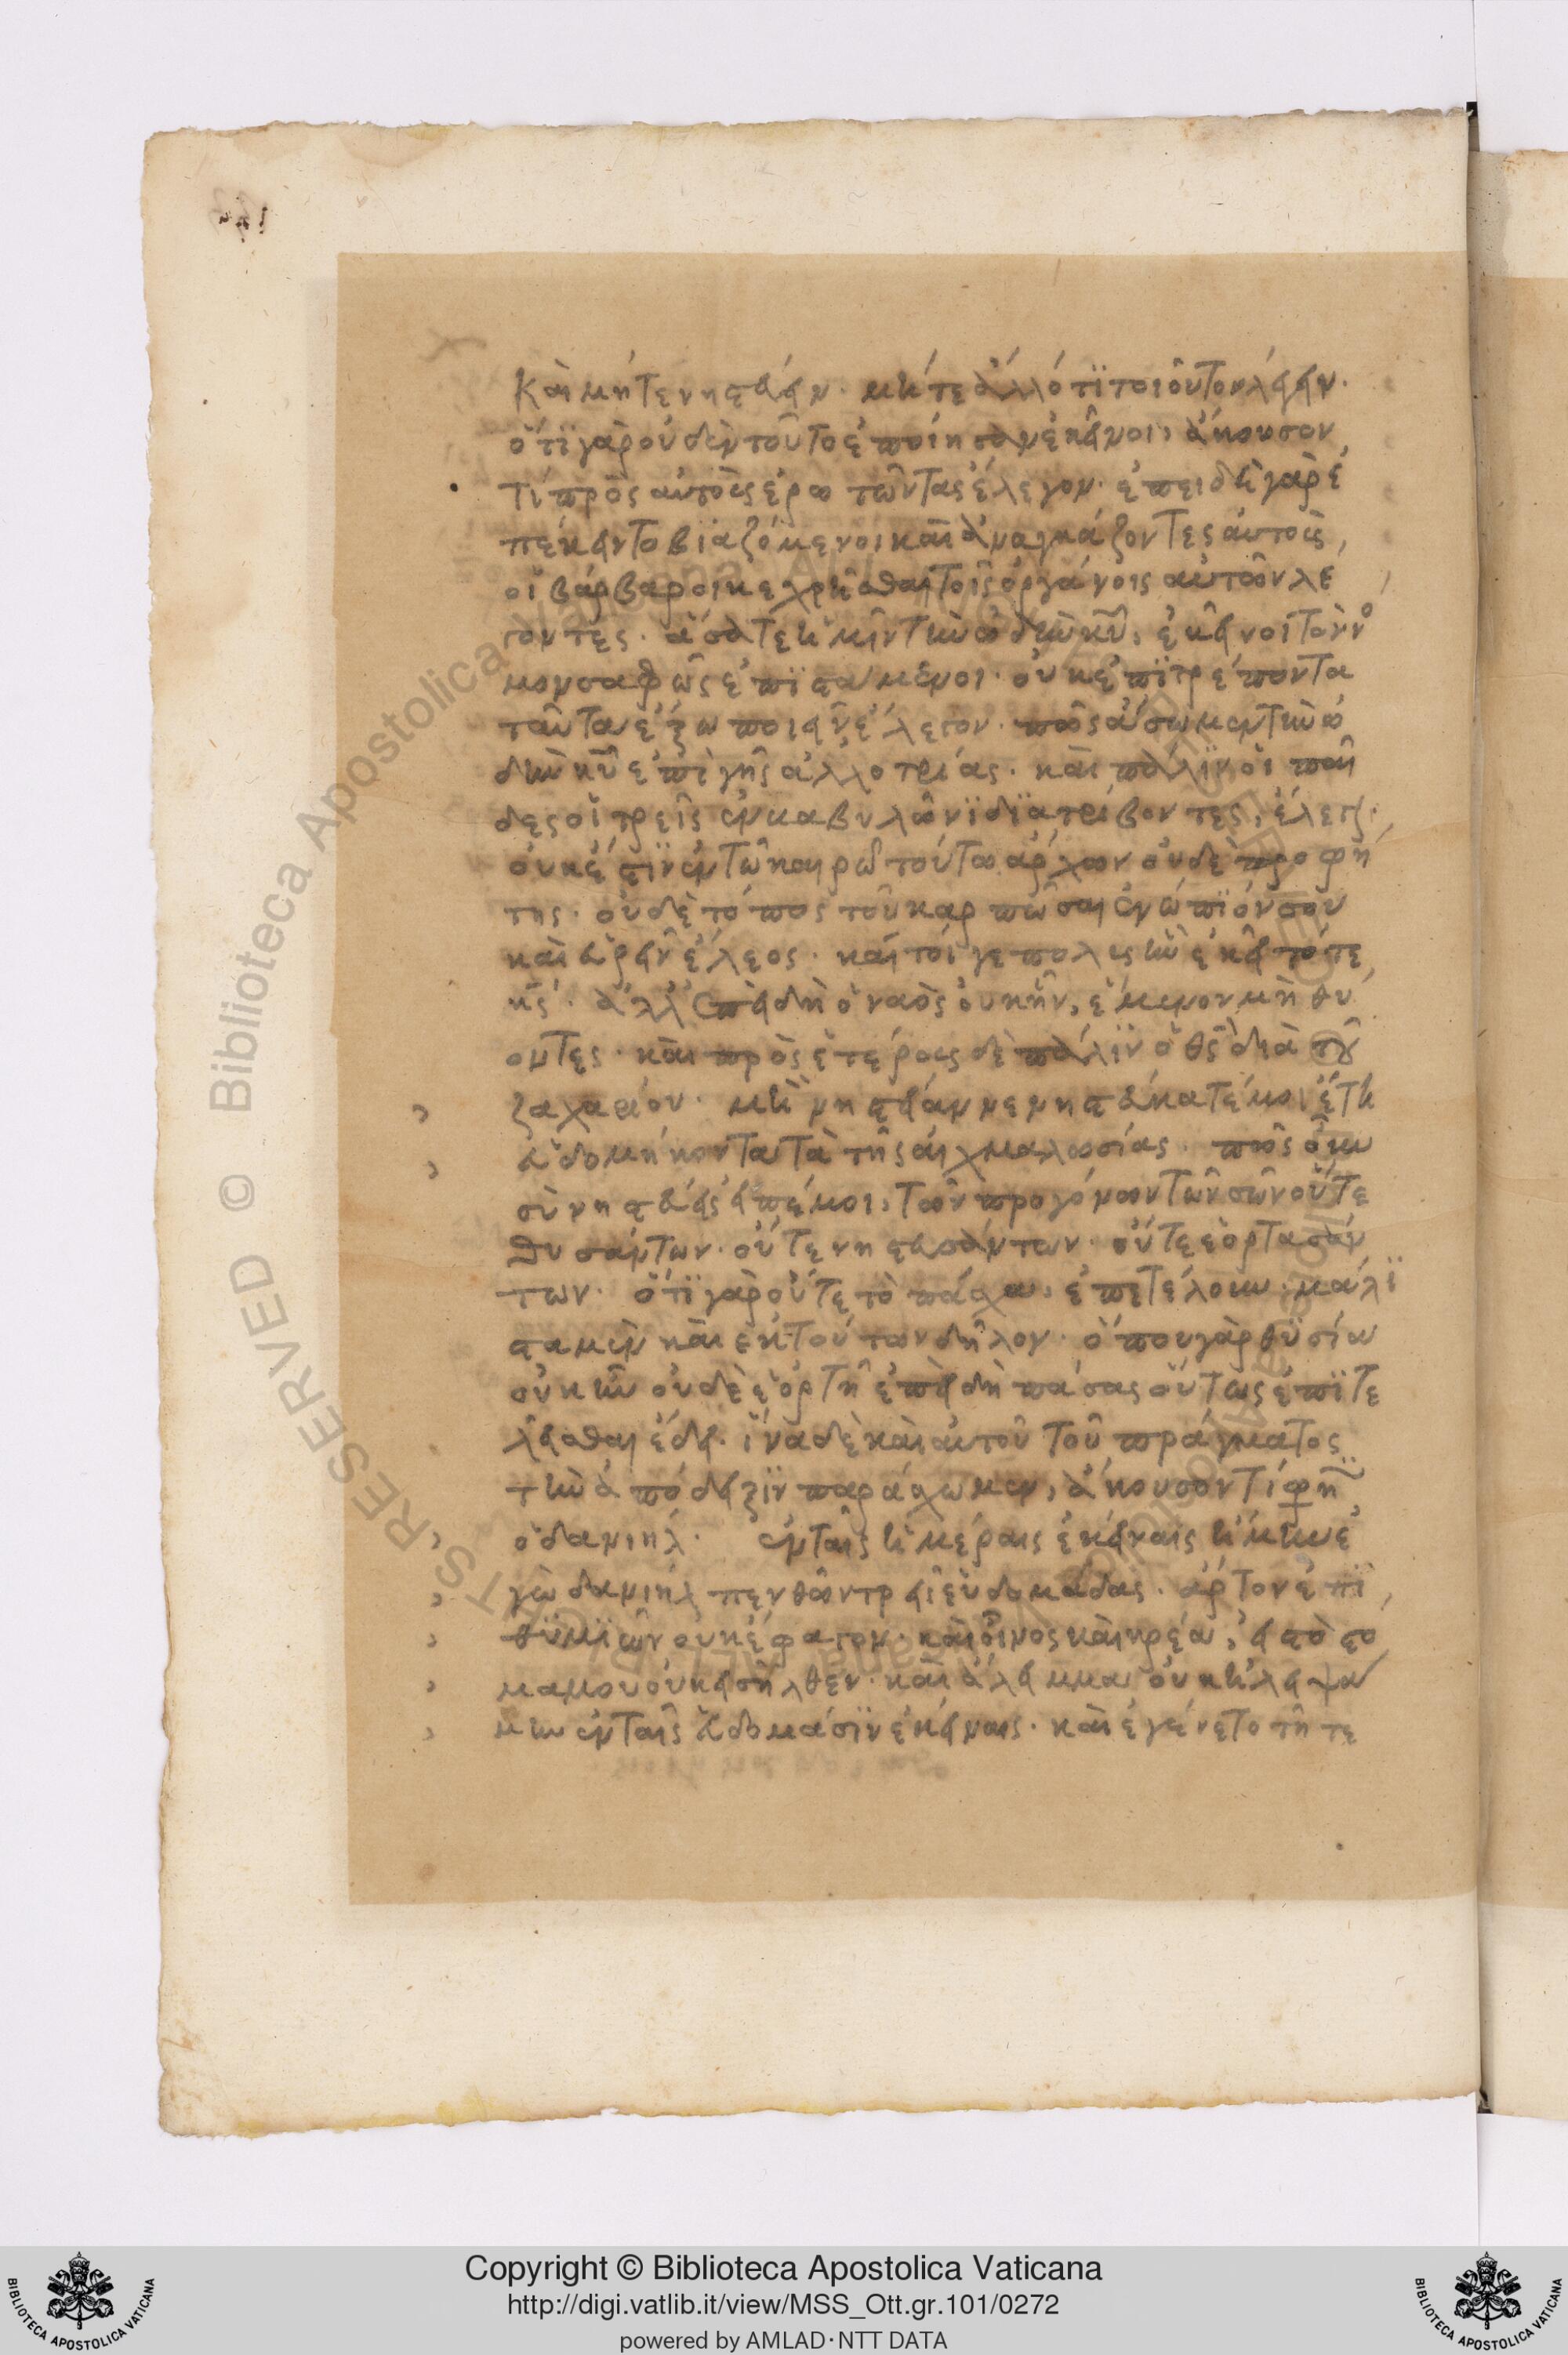 καὶ μήτε νηστεύειν· μήτε ἄλλό τι τοιοῦτον λέγειν·
ὅτι γὰρ οὐδὲν τοῦτο ἐποίησαν ἐκεῖνοι, ἄκουσον
τί πρὸς αὐτοὺς ἐρωτῶντας ἔλεγον· ἐπειδὴ γὰρ ἐ
πέκειντο βιαζόμενοι καὶ ἀναγκάζοντες αὐτοὺς,
οἱ βάρβαροι κεχρῆσθαι τοῖς ὀργάνοις αὐτῶν λέ
γοντες· ἄσατε ἡμῖν τὴν ὠδὴν κυ, ἐκεῖνοι τὸν νό
μον σαφῶς ἐπιστάμενοι· οὐκ ἐπιτρέποντα
ταῦτα ἔξω ποιεῖν ἔλεγον· πῶς ἄσωμεν τὴν ὠ
δὴν κυ ἐπὶ γῆς ἀλλοτρίας· καὶ πάλιν οἱ παῖ
δες οἱ τρεῖς ἐν βαβυλῶνι διατρίβοντες, ἔλεγον·
οὐκ ἔστιν ἐν τῷ καιρῷ τούτω ἄρχων οὐδὲ προφή
της· οὐδὲ τόπος τοῦ καρπῶσαι ἐνώπιόν σου
καὶ εὑρεῖν ἔλεος· καί τοί γε πολὺς ἦν ἐκεῖ τόπος
ἀλλ' ἐπειδὴ ὁ ναὸς οὐκ ἦν, ἔμενον μὴ θύ
οντες· καὶ πρὸς ἑτέρους δὲ πάλιν ὁ θς διὰ τοῦ
ζαχαρίου· μὴ νηστείαν νενηστεύκατέ μοι ἔτη
ἑβδομήκοντα τὰ τῆς αἰχμαλωσίας· πῶς οὖν
σὺ νηστεύεις εἰπέ μοι, τῶν προγόνων τῶν σῶν οὔτε
θυσάντων· οὔτε νηστευσάντων· οὔτε ἑορτασάν
των· ὅτι γὰρ οὔτε τὸ πάσχα, ἐπετέλουν· μάλι
στα μὲν καὶ ἐκ τούτων δῆλον· ὅπου γὰρ θυσία
οὐκ ἦν οὐδὲ ἑορτὴ ἐπειδὴ πάσας οὕτως ἐπιτε
λεῖσθαι ἔδει· ἵνα δὲ καὶ αὐτοῦ τοῦ πράγματος
τὴν ἀπόδειξιν παράσχωμεν, ἄκουσον τί φησιν
ὁ δανιήλ· ἐν ταῖς ἡμέραις ἐκείναις ἤμην ἐ
γὼ δανιήλ πενθῶν τρεῖς ἑβδομάδας· ἄρτον ἐπι
θυμιῶν οὐκ ἔφαγον· καὶ οἶνος καὶ κρέα, εἰς τὸ στό
μα μου οὐκ εἰσῆλθεν· καὶ ἄλειμμα οὐκ ἠλειψά
μην ἐν ταῖς ἑβδομάσιν ἐκείναις· καὶ ἐγένετο τῇ τε
Copyright © Biblioteca Apostolica Vaticana
http://digi.vatlib.it/view/MSS_Ott.gr.101/0272
powered by AMLAD·NTT DATA
BIBLIOTECA APOSTOLICA VATICANA
BIBLIOTECA APOSTOLICA VATICANA